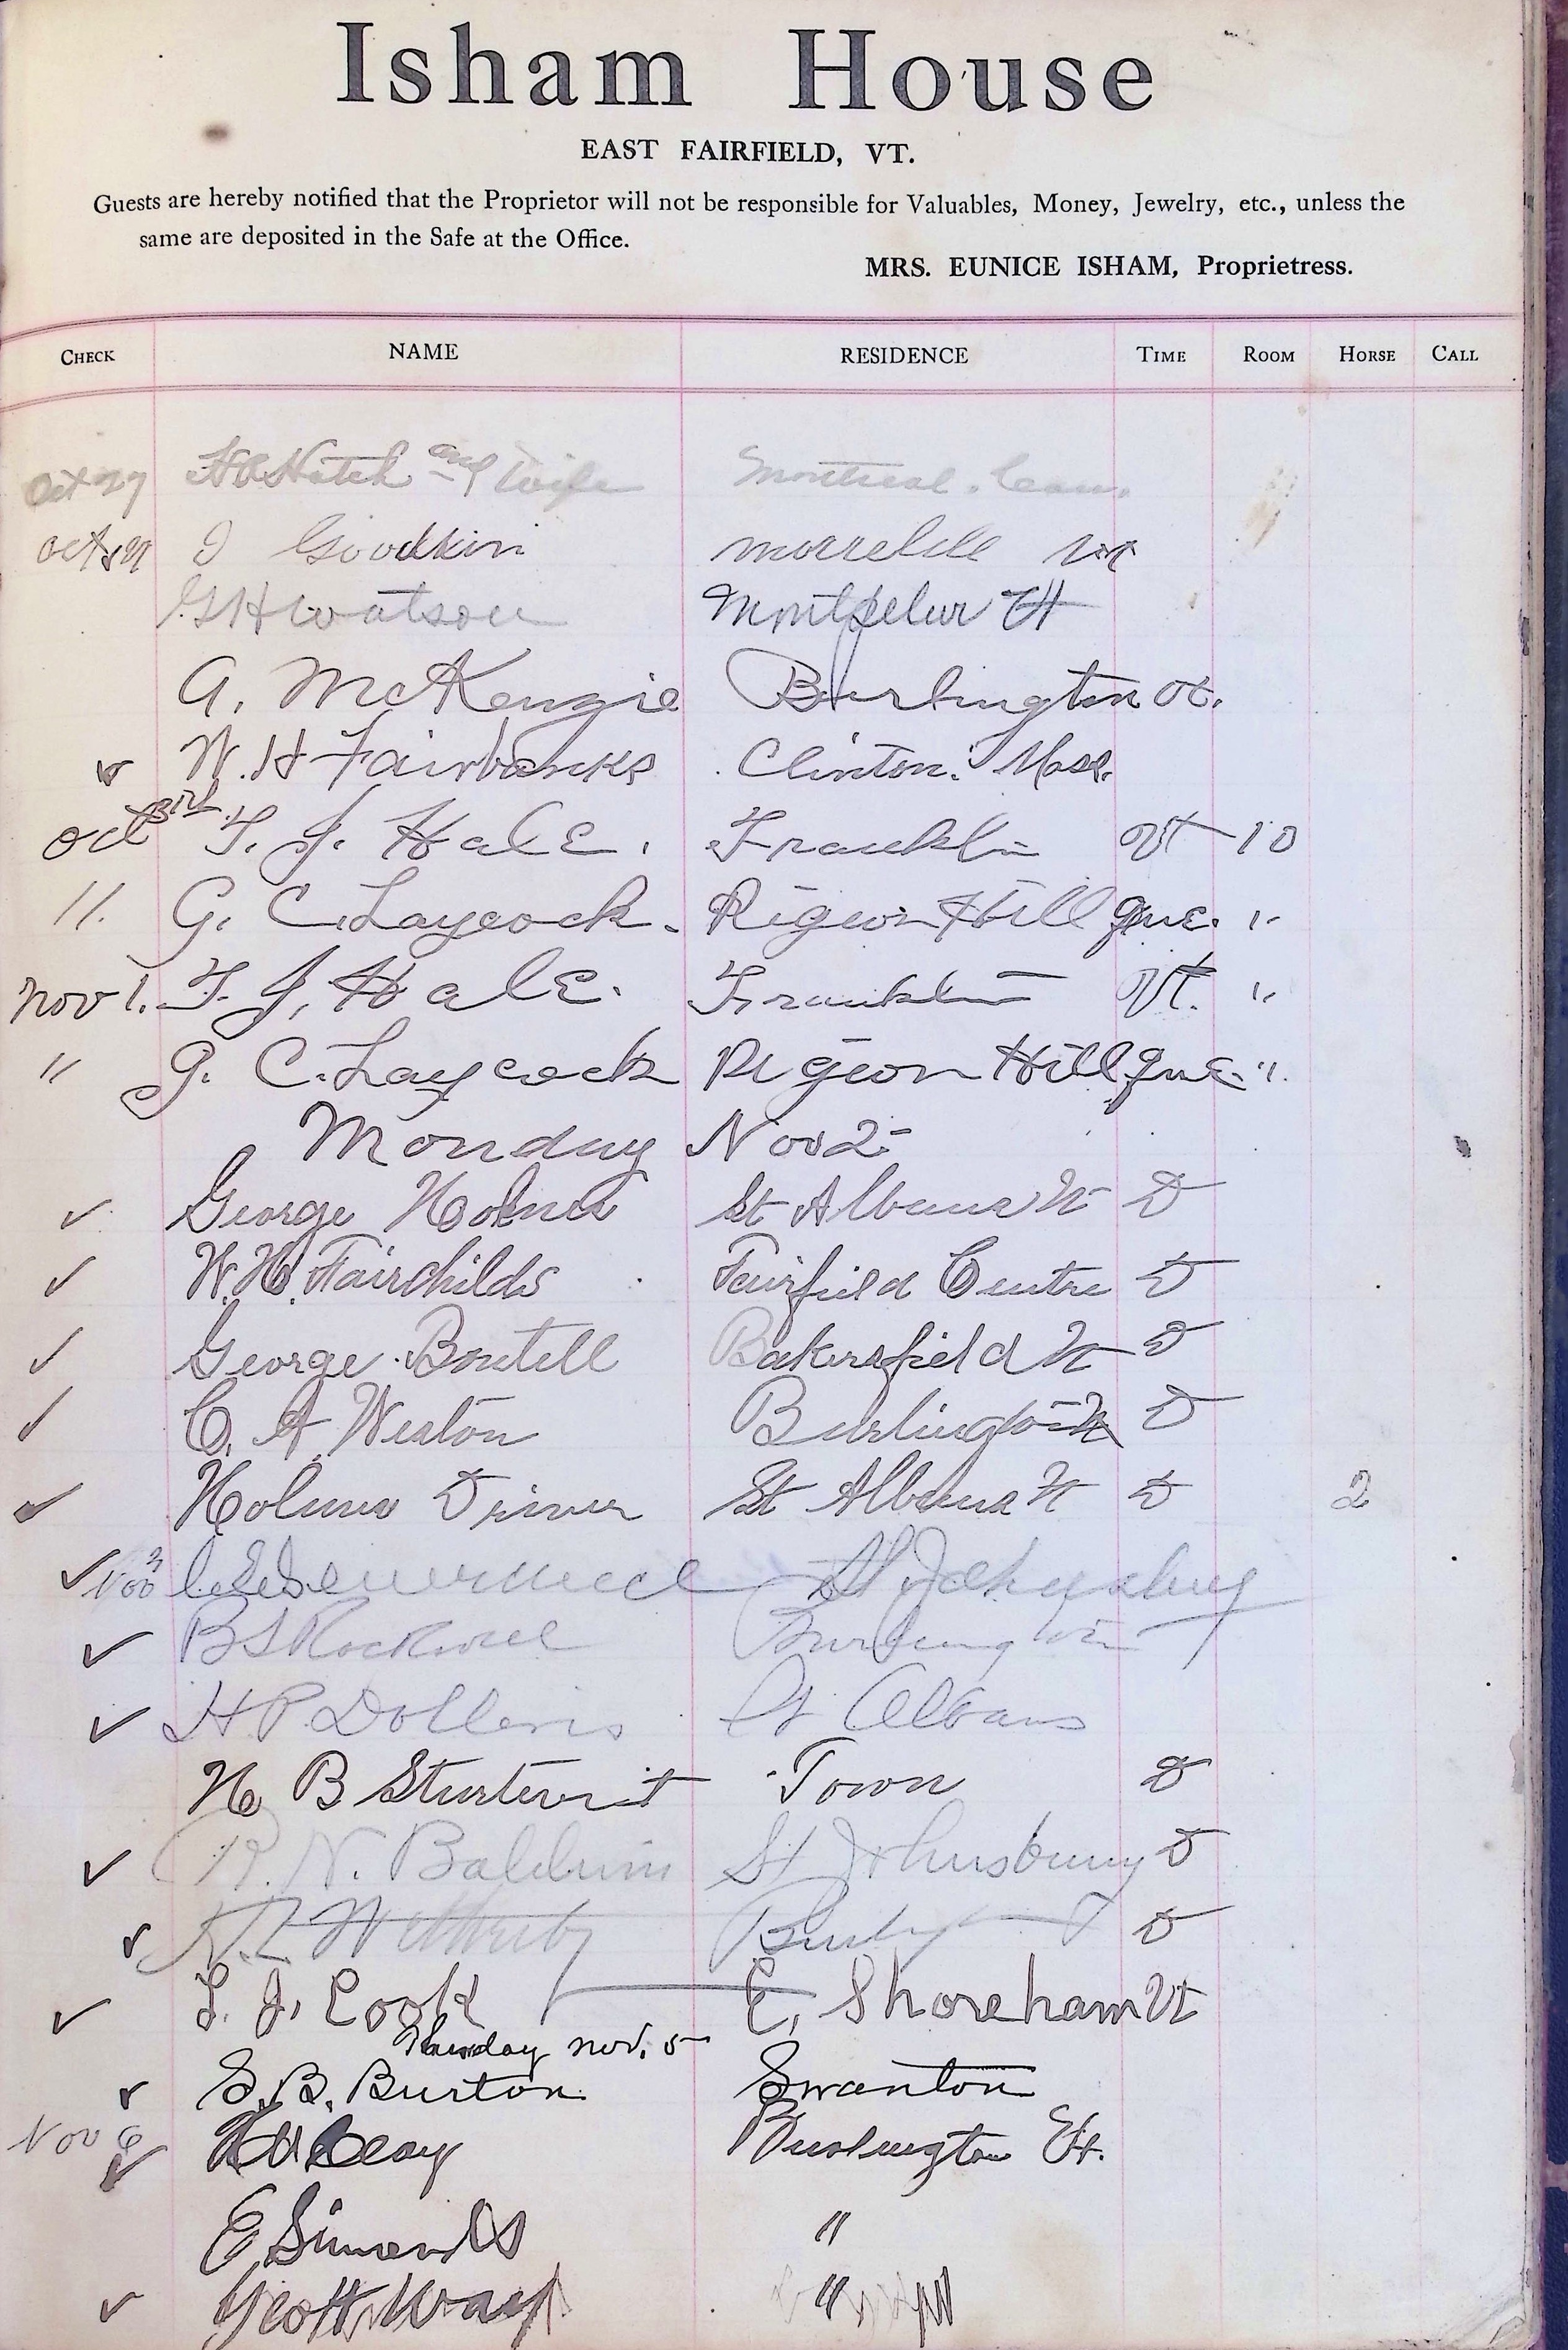 Isham House
EAST FAIRFIELD, VT.
Guests are hereby notified that the Proprietor will not be responsible for Valuables, Money, Jewelry, etc., unless the
same are deposited in the Safe at the Office.
MRS. EUNICE ISHAM, Proprietress.
CHECK NAME RESIDENCE TIME ROOM HORSE CALL
Oct 29 Hatch and Wife Montreal. Can.
Oct Goodkin
G H Watson Montpelier Vt
A. McKenzie Burlington Vt.
W. H Fairbanks Clinton. Mass.
Oct 31st. Hale. Franklin Vt 10
11. G. C. Laycock. Pigeon Hill Que. "
Nov 1. Hale. Franklin Vt. "
" G. C. Laycock Pigeon Hill Que. "
Monday Nov 2-
✓ George Holmes St Albans Vt D
✓ W. H. Fairchilds Fairfield Centre D
✓ George Boutell Bakersfield Vt D
✓ C. A. Weston Burlington Vt D
✓ Holmes Driver St Albans Vt D 2
✓ Nov 3 St Johnsbury
✓ B S Rockwell Burlington
✓ H P. Dollens St Albans
H B Sturtevant Town D
✓ R. N. Baldwin St Johnsbury D
✓ D
✓ Cook E. Shoreham Vt
Thursday Nov. 5
✓ S. B. Burton Swanton
Nov 6 ✓ Burlington Vt.
E Simonds "
✓ "